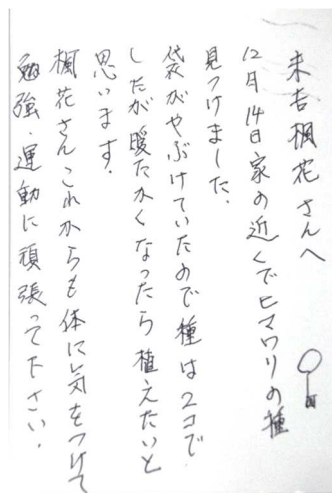 末吉楓花さんへ
12月14日家の近くでヒマワリの種
見つけました.
袋がやぶけていたので種は2コで
したが暖たかくなったら植えたいと
思います.
楓花さんこれからも体に気をつけて
勉強・運動に頑張って下さい.